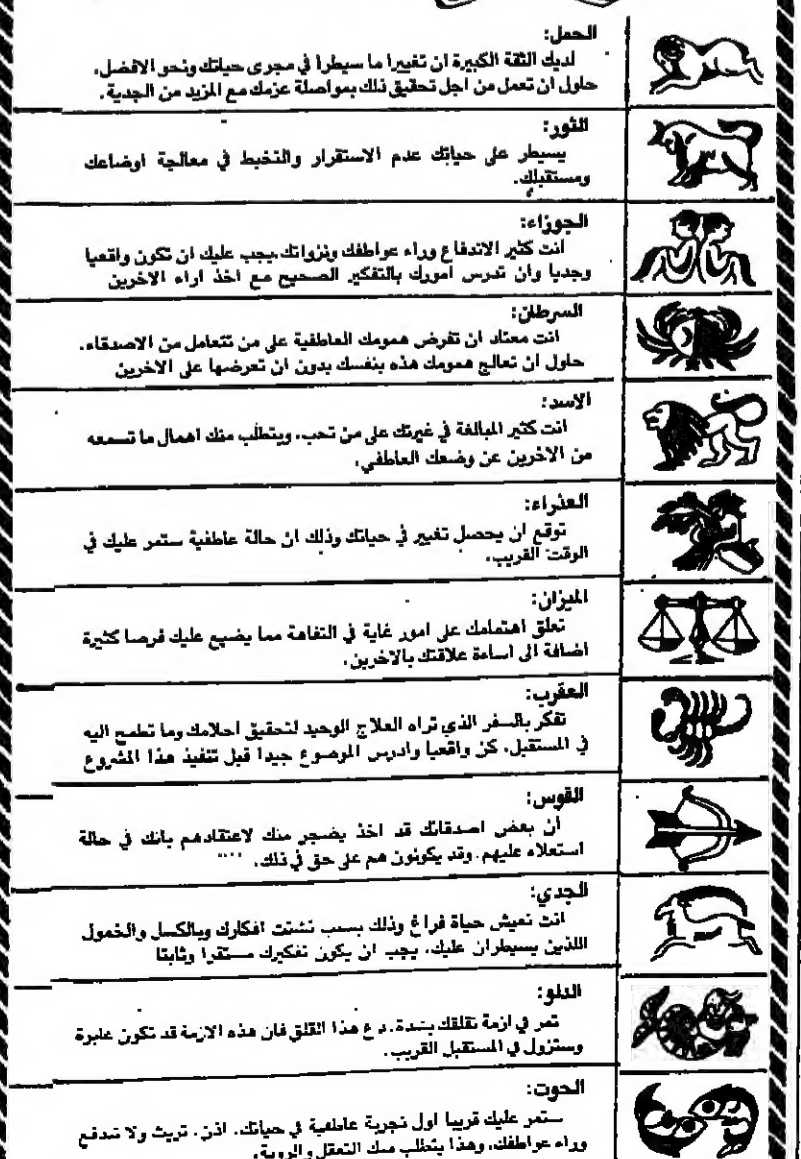 الحمل:
لديك الثقة الكبيرة ان تغييرا ما سيطرا في مجرى حياتك ونحو الافضل،
حاول ان تعمل من اجل تحقيق ذلك بمواصلة عزمك مع المزيد من الجدية.
الثور:
يسيطر على حياتك عدم الاستقرار والتخبط في معالجة اوضاعك
ومستقبلك.
الجوزاء:
انت كثير الاندفاع وراء عواطفك ونزواتك.يجب عليك ان تكون واقعيا
وجديا وان تدرس امورك بالتفكير الصحيح مع اخذ اراء الاخرين
السرطان:
انت معتاد ان تفرض همومك العاطفية على من تتعامل من الاصدقاء.
حاول ان تعالج همومك هذه بنفسك بدون ان تعرضها على الاخرين
الاسد:
انت كثير المبالغة في غيرتك على من تحب، ويتطلب منك اهمال ما تسمعه
من الاخرين عن وضعك العاطفي.
العذراء:
توقع ان يحصل تغيير في حياتك وذلك ان حالة عاطفية ستمر عليك في
الوقت القريب.
الميزان:
تعلق اهتمامك على امور غاية في التفاهة مما يضيع عليك فرصا كثيرة
اضافة الى اساءة علاقتك بالاخرين.
العقرب:
تفكر بالسفر الذي تراه العلاج الوحيد لتحقيق احلامك وما تطمح اليه
في المستقبل، كن واقعيا وادرس الموضوع جيدا قبل تنفيذ هذا المشروع
القوس:
ان بعض اصدقائك قد اخذ يضجر منك لاعتقادهم بانك في حالة
استعلاء عليهم. وقد يكونون هم على حق في ذلك.
الجدي:
انت تعيش حياة فراغ وذلك بسبب تشتت افكارك وبالكسل والخمول
اللذين يسيطران عليك، يجب ان يكون تفكيرك مستقرا وثابتا
الدلو:
تمر في ازمة تقلقك بشدة. دع هذا القلق فان هذه الازمة قد تكون عابرة
وستزول في المستقبل القريب.
الحوت:
ستمر عليك قريبا اول تجربة عاطفية في حياتك. اذن. تريث ولا تندفع
وراء عواطفك، وهذا يتطلب منك التعقل والروية.